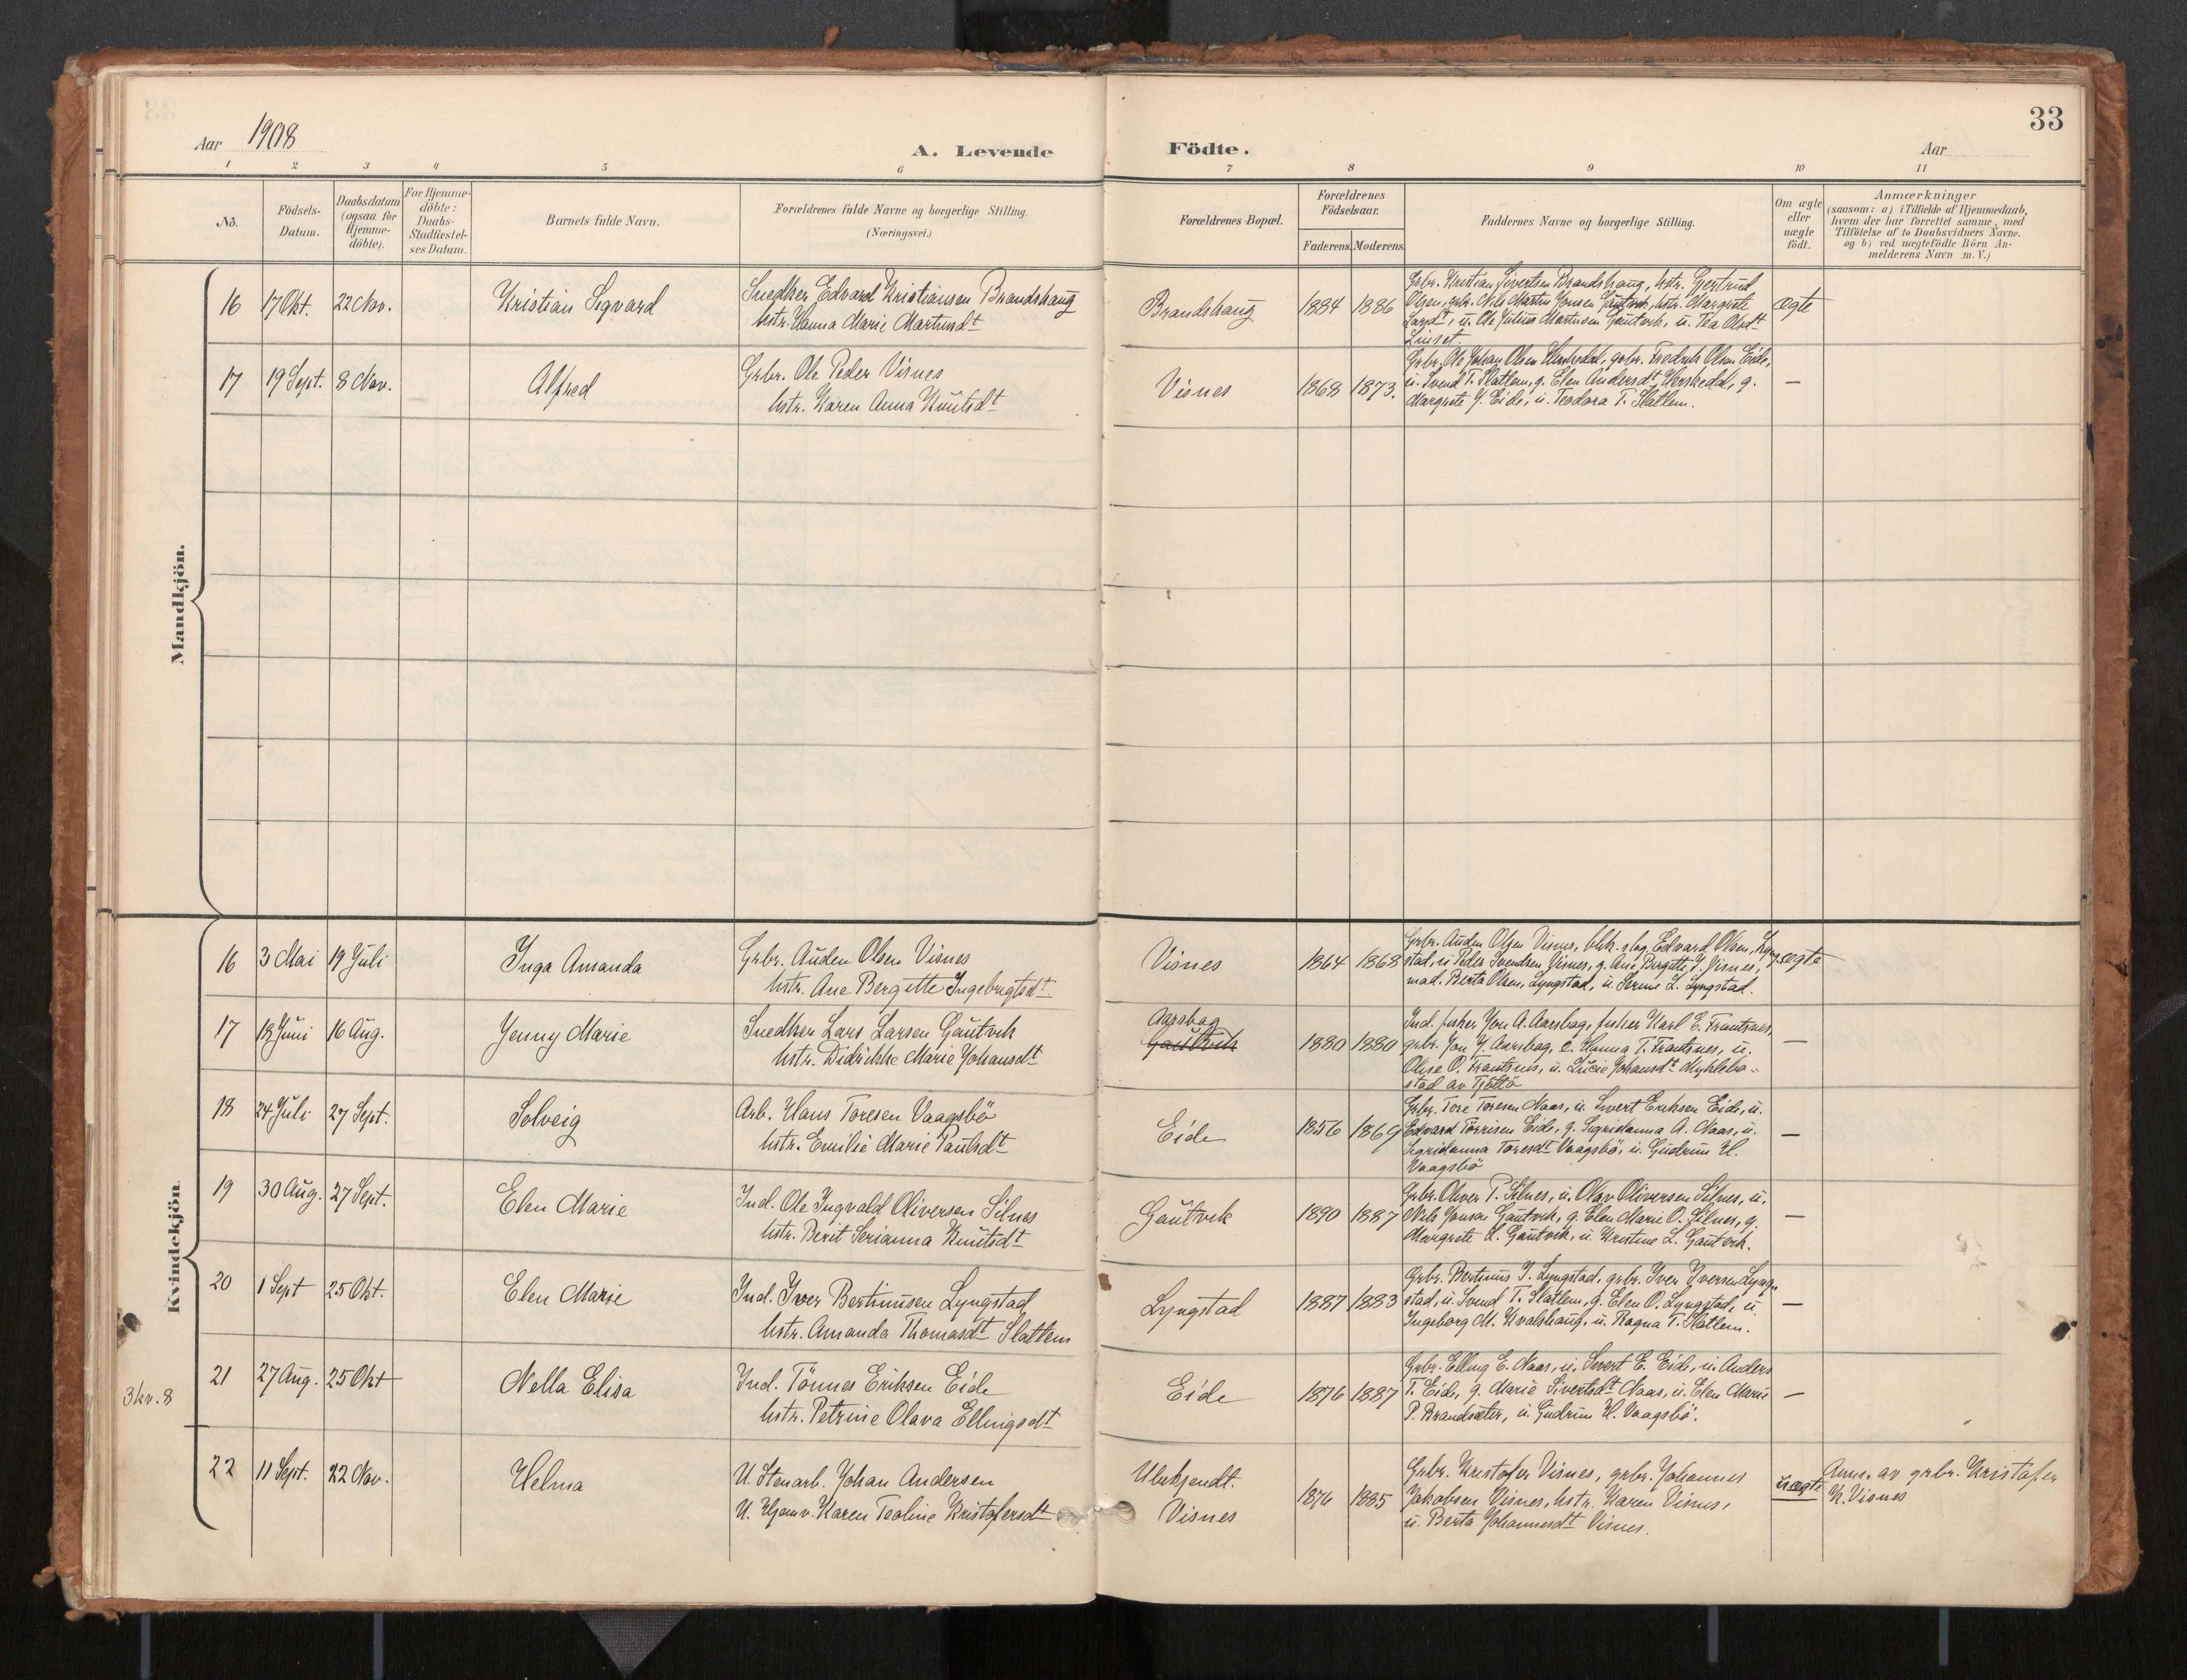 33
Aar 1908
A. Levende Födte.
Aar
1 2 3 4 5 6 7 8 9 10 11
No.
Födsels-Datum.
Daabsdatum (ogsaa for Hjemme-döbte).
For Hjemme-döbte: Daabs-Stadfæstel-ses Datum.
Barnets fulde Navn.
Forældrenes fulde Navne og borgerlige Stilling.
(Næringsvei.)
Forældrenes Bopæl.
Forældrenes Födselsaar.
Faderens. Moderens.
Faddernes Navne og borgerlige Stilling.
Om ægte eller uægte födt.
Anmærkninger
(saasom: a) i Tilfælde af Hjemmedaab,
hvem der har forrettet samme, med
Tilföielse af to Daabsvidners Navne.
og b) ved uægtefödte Börn An-
melderens Navn m.V.)
Mandkjön.
16 17 Okt. 22 Nov. Kristian Sigvard
Snedker Edvard Kristiansen Brandshaug
hstr. Hanna Marie Martinsdt
Brandshaug 1884 1886
Grbr. Kristian Sivertsen Brandshaug, hstr. Gjertrud
Olsen, grbr. Nils Martin Jonsen Gautvik, hstr. Margrete
Larsdt, u. Ole Julius Martinsen Gautvik, u. Tea Olsdt
Linset.
ægte
17 19 Sept. 8 Nov. Alfred
Grbr. Ole Peder Visnes
hstr. Karen Anna Knutsdt
Visnes 1868 1873.
Grbr. Ole Johan Olsen Herskedal, grbr. Fredrik Olsen Eide,
u. Svend T. Slatlem, g. Elen Andersdt Herskedal, g.
Margrete J. Eide, u. Teodora T. Slatlem.
—
Kvindekjön
16 3 Mai 19 Juli Inga Amanda
Grbr. Auden Olsen Visnes
hstr. Ane Bergitte Ingebrigtsdt
Visnes 1864 1868
Grbr. Auden Olsen Visnes, blik.slag. Edvard Olsen, Lyng-
stad, u. Peder Svendsen Visnes, g. Ane Bergitte I. Visnes,
mad. Berta Olsen, Lyngstad, u. Serine L. Lyngstad.
ægte
17 18 Juni 16 Aug. Jenny Marie
Snedker Lars Larsen Gautvik
hstr. Didrikke Marie Johansdt
Aarsbag
Gautvik
1880 1880
Ind. fisker Jon A. Aarsbag, fisker Karl E. Frantsnes,
grbr. Jon J. Aarsbag, e. Hanna T. Frantsnes, u.
Oluse O. Frantsnes, u. Lucie Johansdt Myklebo-
stad av Tjöttö
—
18 24 Juli 27 Sept. Solveig
Arb. Hans Toresen Vaagsbö
hstr. Emilie Marie Paulsdt
Eide 1856 1869
Grbr. Tore Toresen Naas, u. Sivert Eriksen Eide, u.
Edvard Törrisen Eide, g. Sigridanna A. Naas, u.
Sigridanna Toresdt Vaagsbö, u. Gudrun H.
Vaagsbö
—
19 30 Aug. 27 Sept. Elen Marie
Ind. Ole Ingvald Oliversen Silnes
hstr. Berit Serianna Knutsdt
Gautvik 1890 1887
Grbr. Oliver P. Silnes, u. Olav Oliversen Silnes, u.
Nils Jonson Gautvik, g. Elen Marie O. Silnes, g.
Margrete L. Gautvik, u. Kristine L. Gautvik.
—
20 1 Sept 25 Okt. Elen Marie
Ind. Iver Bertinusen Lyngstad
hstr. Amanda Thomasdt Slatlem
Lyngstad 1887 1883
Grbr. Bertinus I. Lyngstad, grbr. Iver Iversen Lyng-
stad, u. Svend T. Slatlem, g. Elen O. Lyngstad, u.
Ingeborg M. Kvalshaug, u. Ragna T. Slatlem.
—
21 27 Aug. 25 Okt Nella Elisa
Ind. Tönnes Eriksen Eide
hstr. Petrine Olava Ellingsdt
Eide 1876 1887
Grbr. Elling E. Naas, u. Sivert E. Eide, u. Anders
T. Eide, g. Marie Sivertsdt Naas, u. Elen Marie
P. Brandsæter, u. Gudrun H. Vaagsbö.
—
3 kv. 8
22 11 Sept. 22 Nov. Helma
U. Stenarb. Johan Andersen
U. Hjemv. Karen Teoline Kristofersdt
Ubekjendt.
Visnes
1876 1885
Grbr. Kristofer Visnes, grbr. Johannes
Jakobsen Visnes, hstr. Karen Visnes,
u. Berta Johannesdt Visnes.
uægte
Anm. av grbr. Kristofer
K. Visnes